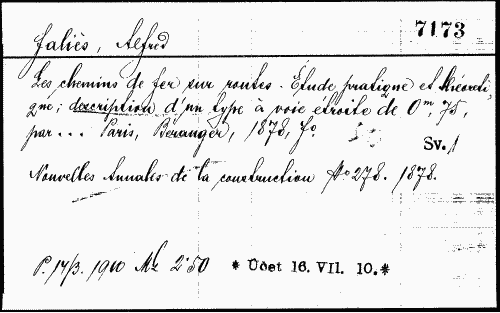 7173
Faliès, Alfred
Les chemins de fer sur routes. Étude pratique et théori-
que; description d'un type à voie étroite de 0m, 75,
par... Paris, Béranger, 1878, fo.
Sv. 1
Nouvelles Annales de la construction No 278. 1878.
P. 14/3. 1910 Mk 2.50 * Üdet 16. VII. 10.*